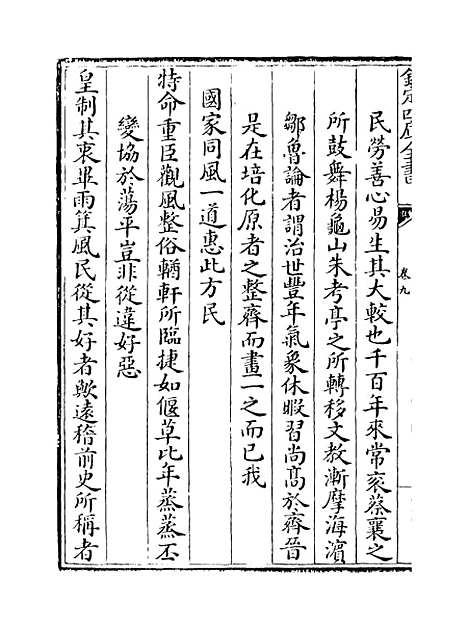 欽定四庫全書
卷九
民勞善心易生其大較也千百年來常衮蔡襄之
所鼓舞楊龜山朱考亭之所轉移文教漸摩海濱
鄒魯論者謂治世豐年氣象休暇習尚髙於齊晉
是在培化原者之整齊而畫一之而已我
國家同風一道惠此方民
特命重臣觀風整俗輶軒所臨捷如偃草比年蒸蒸丕
變協於蕩平豈非從違好惡
皇制其衷畢雨箕風民從其好者歟逺稽前史所稱者